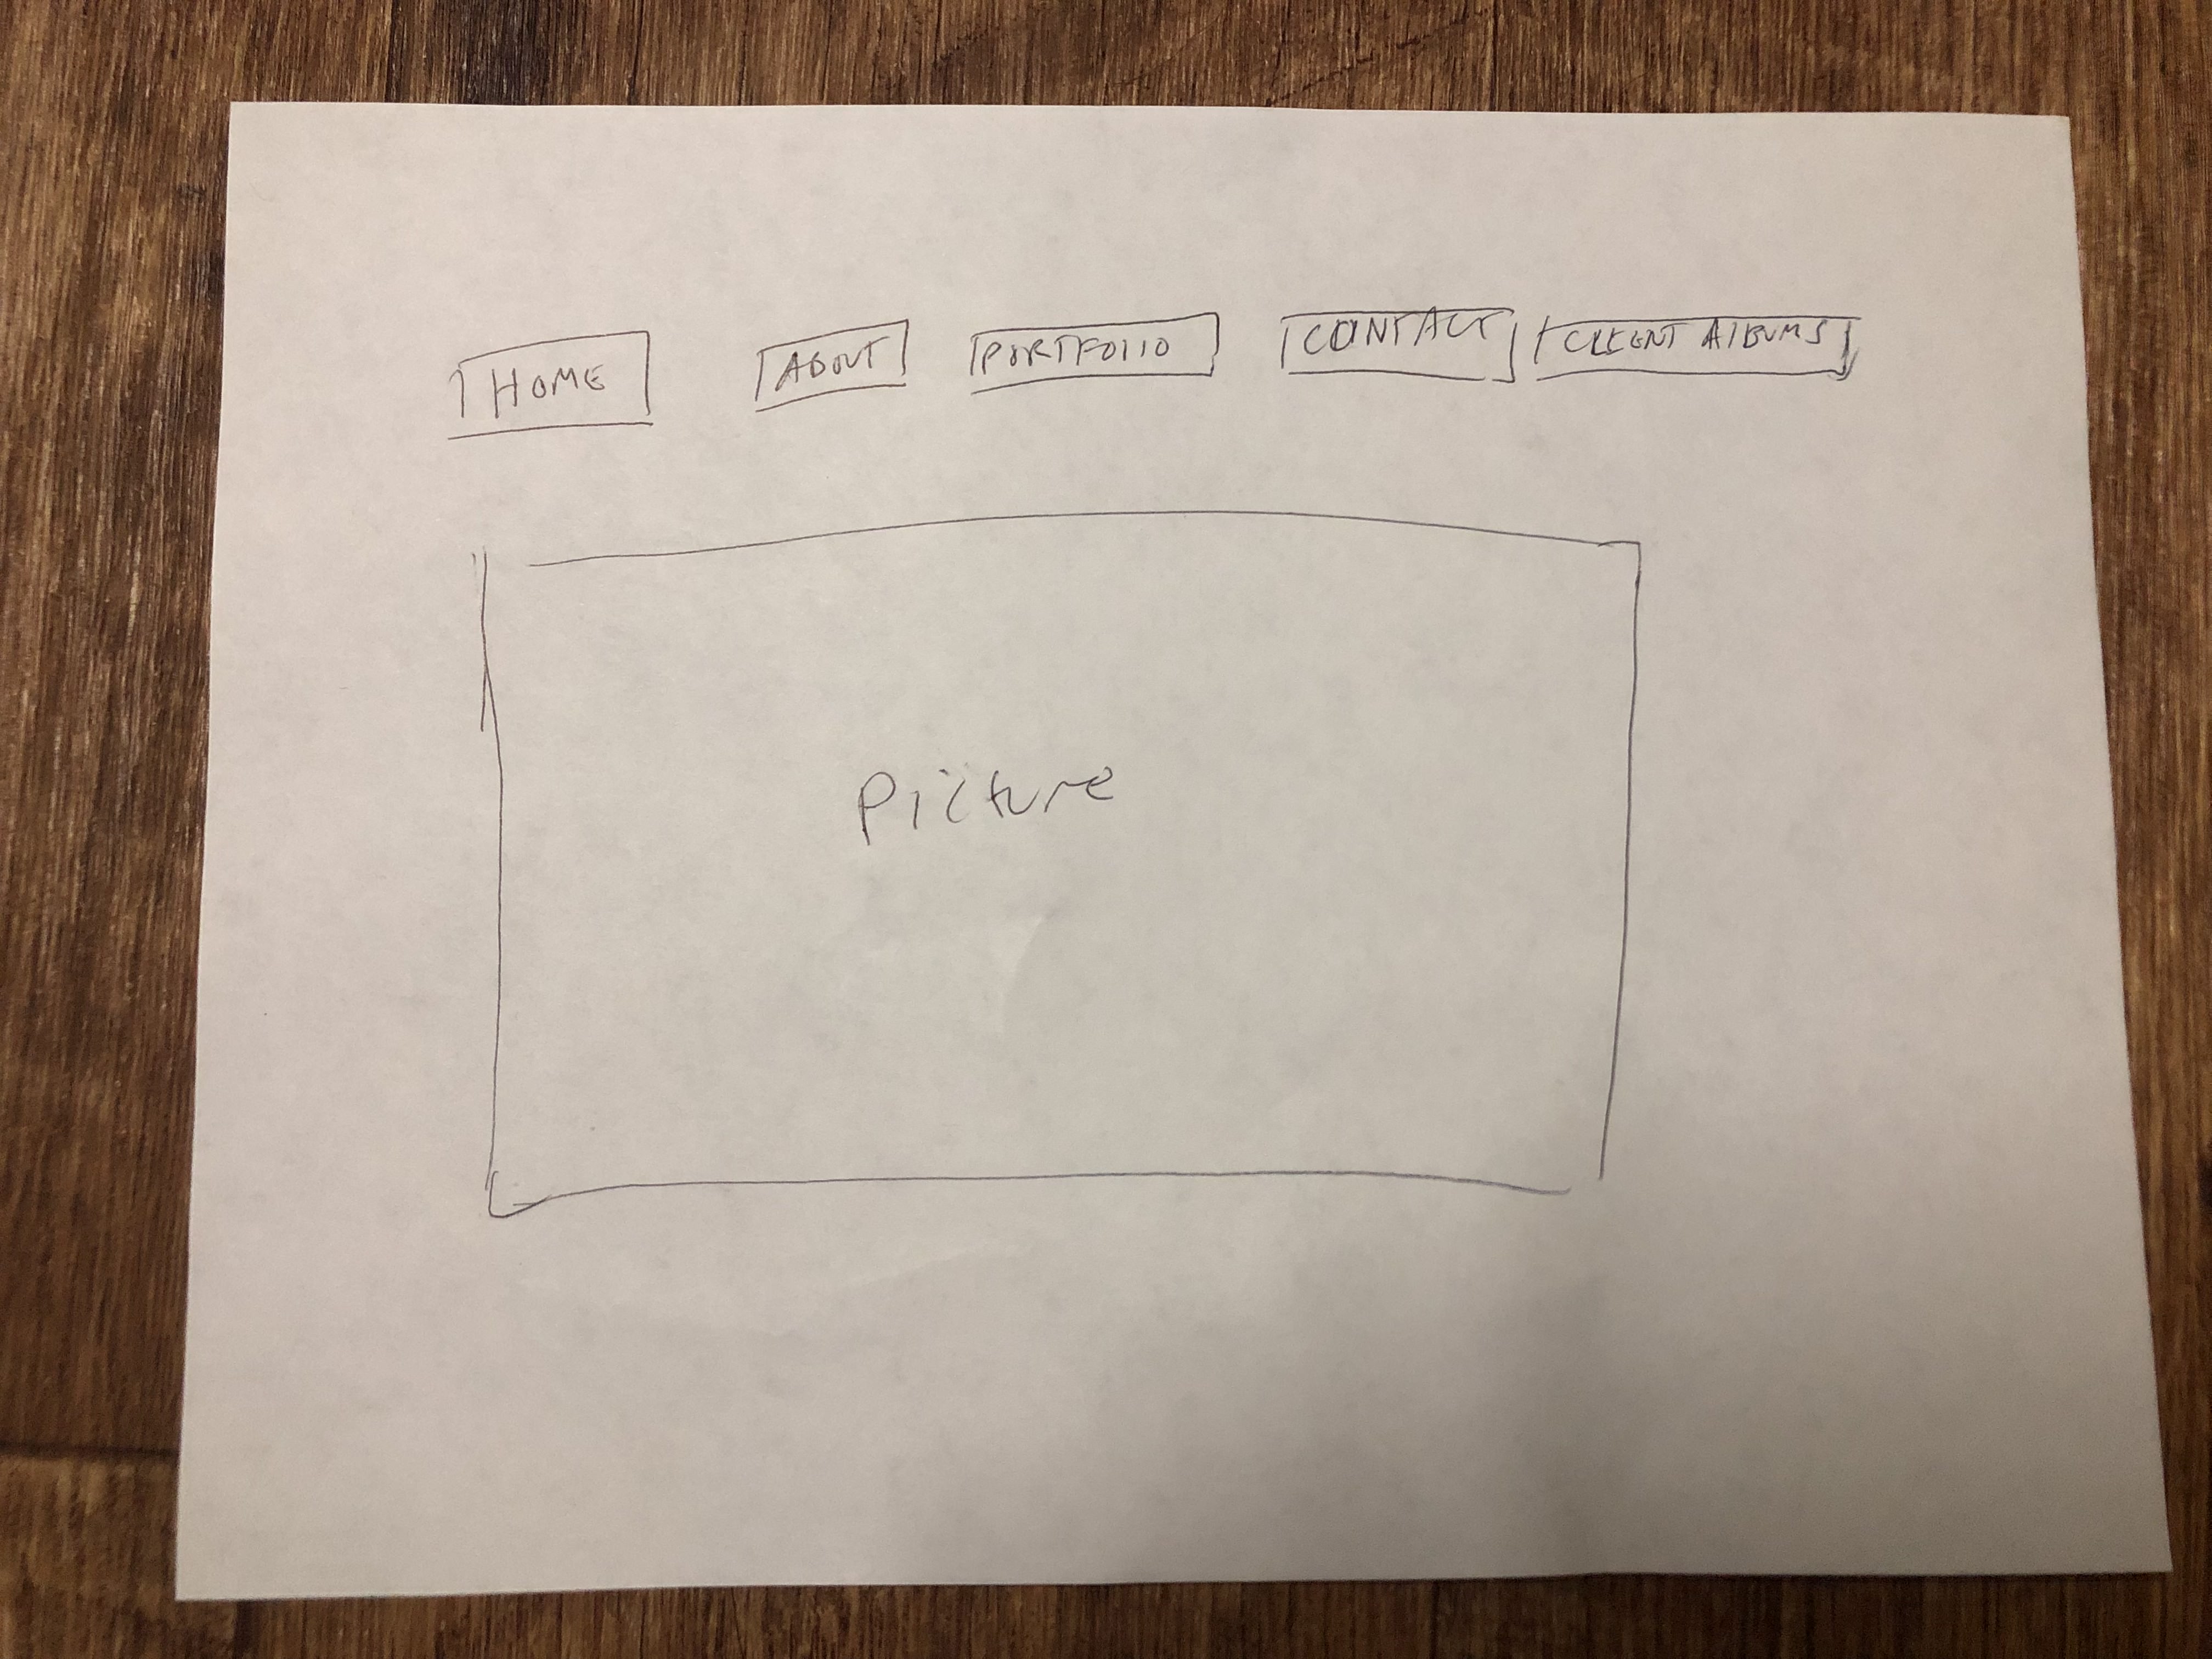 HOME
ABOUT
PORTFOLIO
CONTACT
CLIENT ALBUMS
Picture